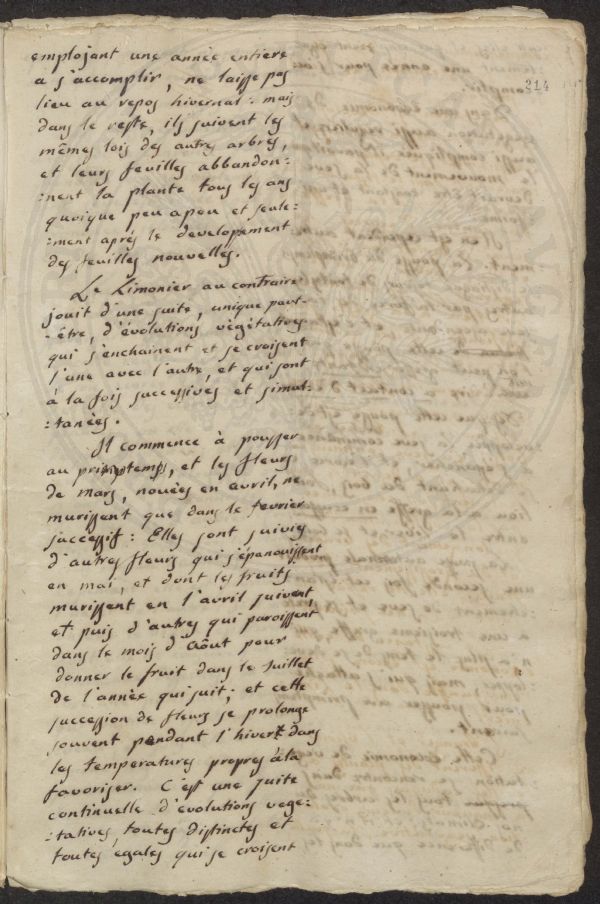 214
emplojant une année entiere
a s'accomplir, ne laisse pas
lieu au repos hivernal: mais
dans le reste, ils suivent les
mêmes lois des autres arbres,
et leurs feuilles abbandon:
:nent la plante tous les ans
quoique peu apeu et seule:
:ment aprés le developpement
des feuilles nouvelles.
Le Limonier au contraire
jouit d'une suite, unique peut-
-être, d'évolutions végétatives
qui s'enchainent et se croisent
l'une avec l'autre, et qui sont
à la fois successives et simul:
:tanées.
Il commence à pousser
au printemps, et les fleurs
de mars, nouées en avril, ne
murissent que dans le fevrier
successif: Elles sont suivies
d'autres fleurs qui s'épanouissent
en mai, et dont les fruits
murissent en l'avril suivent,
et puis d'autres qui paroissent
dans le mois d'Aôut pour
donner le fruit dans le Juillet
de l'année qui suit; et cette
succession de fleurs se prolonge
souvent pendant l'hiver dans
les temperatures propres àla
favoriser. C'est une suite
continuelle d'evolutions vege:
:tatives, toutes distinctes et
toutes égales qui se croisent